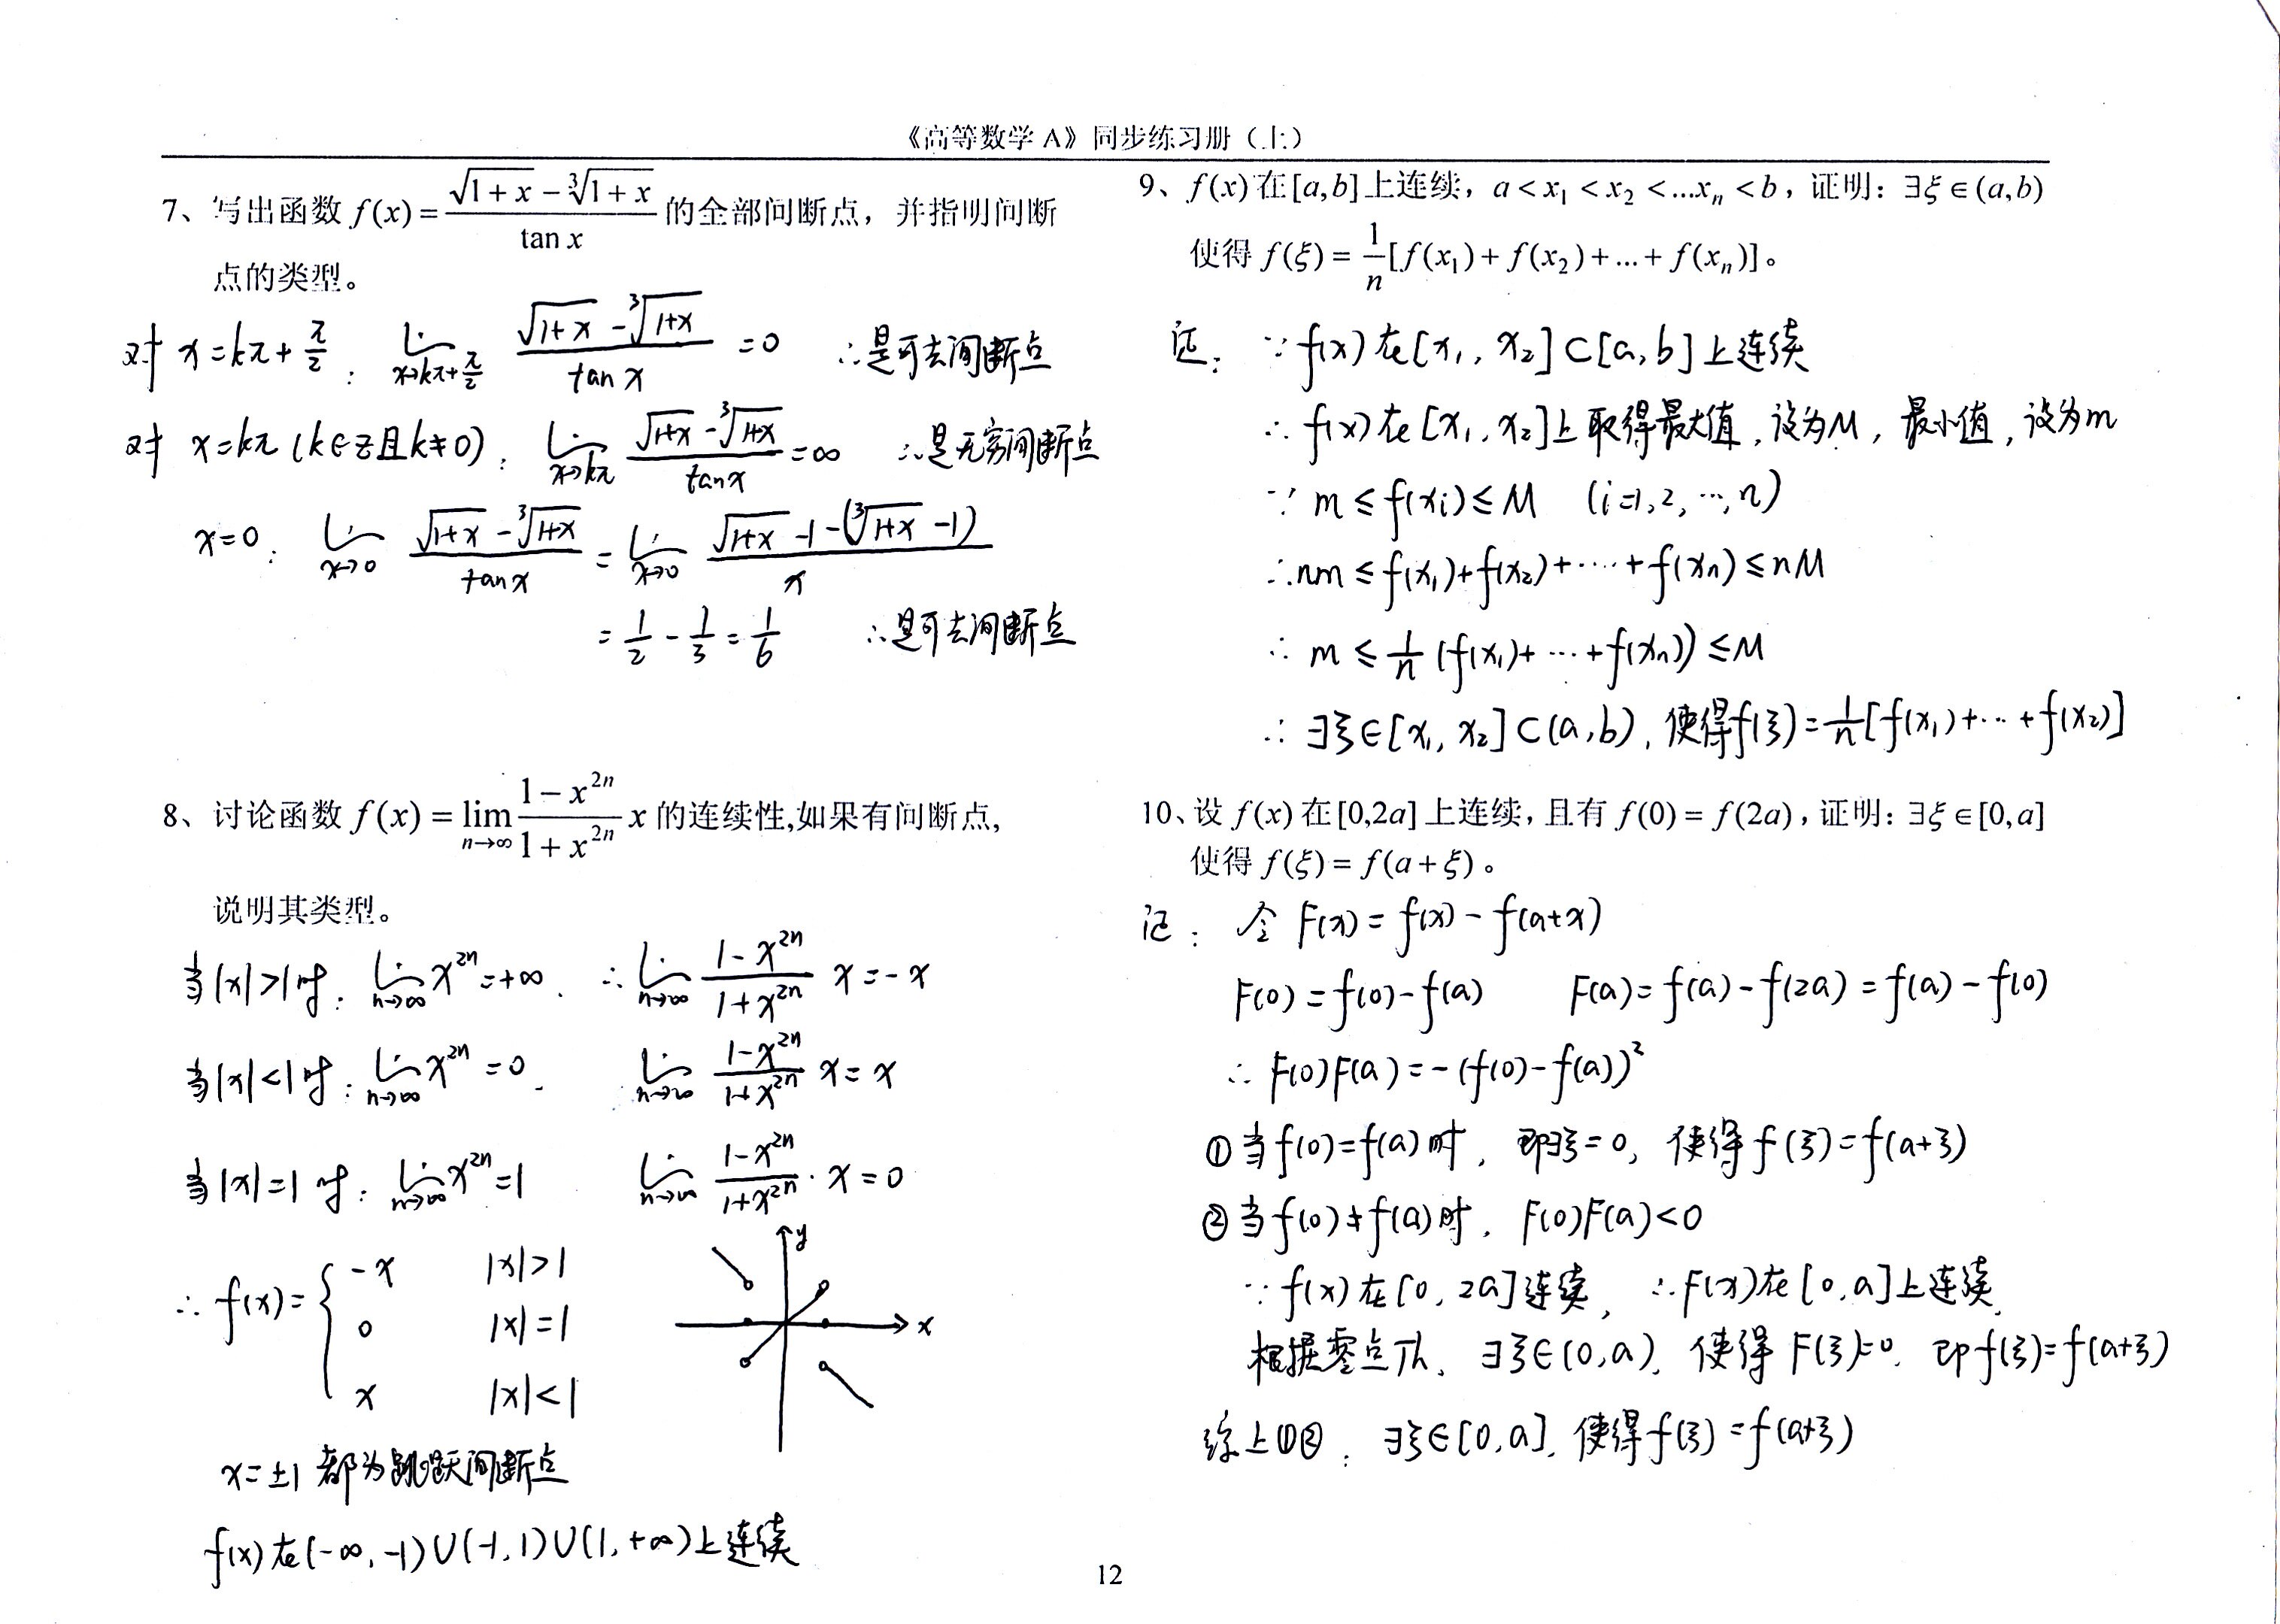 《高等数学 A》同步练习册（上）
7、写出函数 f(x) = (√(1+x) − ∛(1+x)) / tan x 的全部间断点，并指明间断
点的类型。
对 x=kπ+π/2 : lim_{x→kπ+π/2} (√(1+x) − ∛(1+x)) / tan x = 0 ∴是可去间断点
对 x=kπ (k∈Z且k≠0) : lim_{x→kπ} (√(1+x) − ∛(1+x)) / tan x = ∞ ∴是无穷间断点
x=0 : lim_{x→0} (√(1+x) − ∛(1+x)) / tan x = lim_{x→0} (√(1+x) −1 − (∛(1+x) −1)) / x
= 1/2 − 1/3 = 1/6 ∴是可去间断点
8、讨论函数 f(x) = lim_{n→∞} (1−x^{2n}) / (1+x^{2n}) x 的连续性,如果有间断点,
说明其类型。
当|x|>1时: lim_{n→∞} x^{2n} = +∞. ∴ lim_{n→∞} (1−x^{2n}) / (1+x^{2n}) x = −x
当|x|<1时: lim_{n→∞} x^{2n} = 0. lim_{n→∞} (1−x^{2n}) / (1+x^{2n}) x = x
当|x|=1时: lim_{n→∞} x^{2n} = 1 lim_{n→∞} (1−x^{2n}) / (1+x^{2n}) · x = 0
∴ f(x) = {
−x |x|>1
0 |x|=1
x |x|<1
y
x
x=±1 都为跳跃间断点
f(x)在(−∞,−1)∪(−1,1)∪(1,+∞)上连续
9、f(x) 在 [a,b] 上连续，a < x₁ < x₂ < ...xₙ < b，证明：∃ξ∈(a,b)
使得 f(ξ) = 1/n [f(x₁) + f(x₂) + ... + f(xₙ)]。
证: ∵ f(x)在[x₁, x₂]⊂[a,b]上连续
∴ f(x)在[x₁, x₂]上取得最大值,设为M, 最小值,设为m
∵ m ≤ f(xi) ≤ M (i=1,2,…,n)
∴ nm ≤ f(x₁)+f(x₂)+⋯⋯+f(xₙ) ≤ nM
∴ m ≤ 1/n (f(x₁)+⋯+f(xₙ)) ≤ M
∴ ∃ξ∈[x₁, x₂]⊂(a,b), 使得f(ξ)=1/n[f(x₁)+⋯+f(x₂)]
10、设 f(x) 在 [0,2a] 上连续，且有 f(0) = f(2a)，证明：∃ξ∈[0,a]
使得 f(ξ) = f(a+ξ)。
证: 令 F(x) = f(x) − f(a+x)
F(0) = f(0)−f(a) F(a) = f(a)−f(2a) = f(a)−f(0)
∴ F(0)F(a) = −(f(0)−f(a))²
①当f(0)=f(a)时, 即∃ξ=0, 使得f(ξ)=f(a+ξ)
②当f(0)≠f(a)时, F(0)F(a)<0
∵ f(x)在[0,2a]连续, ∴F(x)在[0,a]上连续,
根据零点Th, ∃ξ∈(0,a), 使得F(ξ)=0, 即f(ξ)=f(a+ξ)
综上①②: ∃ξ∈[0,a], 使得f(ξ)=f(a+ξ)
12